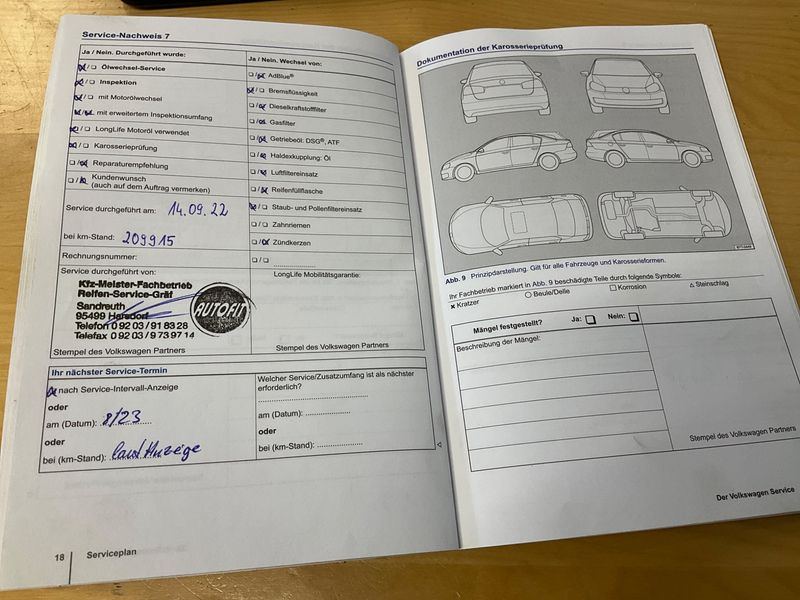 Service-Nachweis 7
Ja / Nein. Durchgeführt wurde:
☒/☐ Ölwechsel-Service
☒/☐ Inspektion
☒/☐ mit Motorölwechsel
mit erweitertem Inspektionsumfang
☒/☐ LongLife Motoröl verwendet
☒/☐ Karosserieprüfung
☐/☒ Reparaturempfehlung
☐/☒ Kundenwunsch
(auch auf dem Auftrag vermerken)
Service durchgeführt am: 14.09.22
bei km-Stand: 209915
Rechnungsnummer:
Service durchgeführt von:
Kfz-Meister-Fachbetrieb
Reifen-Service-Gräf
Sandreuth
95499 Harsdorf
Telefon 0 92 03 / 91 83 28
Telefax 0 92 03 / 9 73 97 14
AUTOFIT
Stempel des Volkswagen Partners
Ja / Nein. Wechsel von:
☐/☒ AdBlue®
☒/☐ Bremsflüssigkeit
☐/☒ Dieselkraftstofffilter
☐/☒ Gasfilter
☐/☒ Getriebeöl: DSG®, ATF
☐/☒ Haldexkupplung: Öl
☐/☒ Luftfiltereinsatz
☐/☒ Reifenfüllflasche
☒/☐ Staub- und Pollenfiltereinsatz
☐/☐ Zahnriemen
☐/☒ Zündkerzen
☐/☐ ....................
LongLife Mobilitätsgarantie:
Stempel des Volkswagen Partners
Ihr nächster Service-Termin
☒ nach Service-Intervall-Anzeige
oder
am (Datum): 8/23
oder
bei (km-Stand): laut Anzeige
Welcher Service/Zusatzumfang ist als nächster
erforderlich?
am (Datum): ....................
oder
bei (km-Stand): ....................
◁
18 Serviceplan
Dokumentation der Karosserieprüfung
Abb. 9 Prinzipdarstellung. Gilt für alle Fahrzeuge und Karosserieformen.
Ihr Fachbetrieb markiert in Abb. 9 beschädigte Teile durch folgende Symbole:
× Kratzer ○ Beule/Delle □ Korrosion △ Steinschlag
Mängel festgestellt? Ja: ☐ Nein: ☐
Beschreibung der Mängel:
Stempel des Volkswagen Partners
Der Volkswagen Service